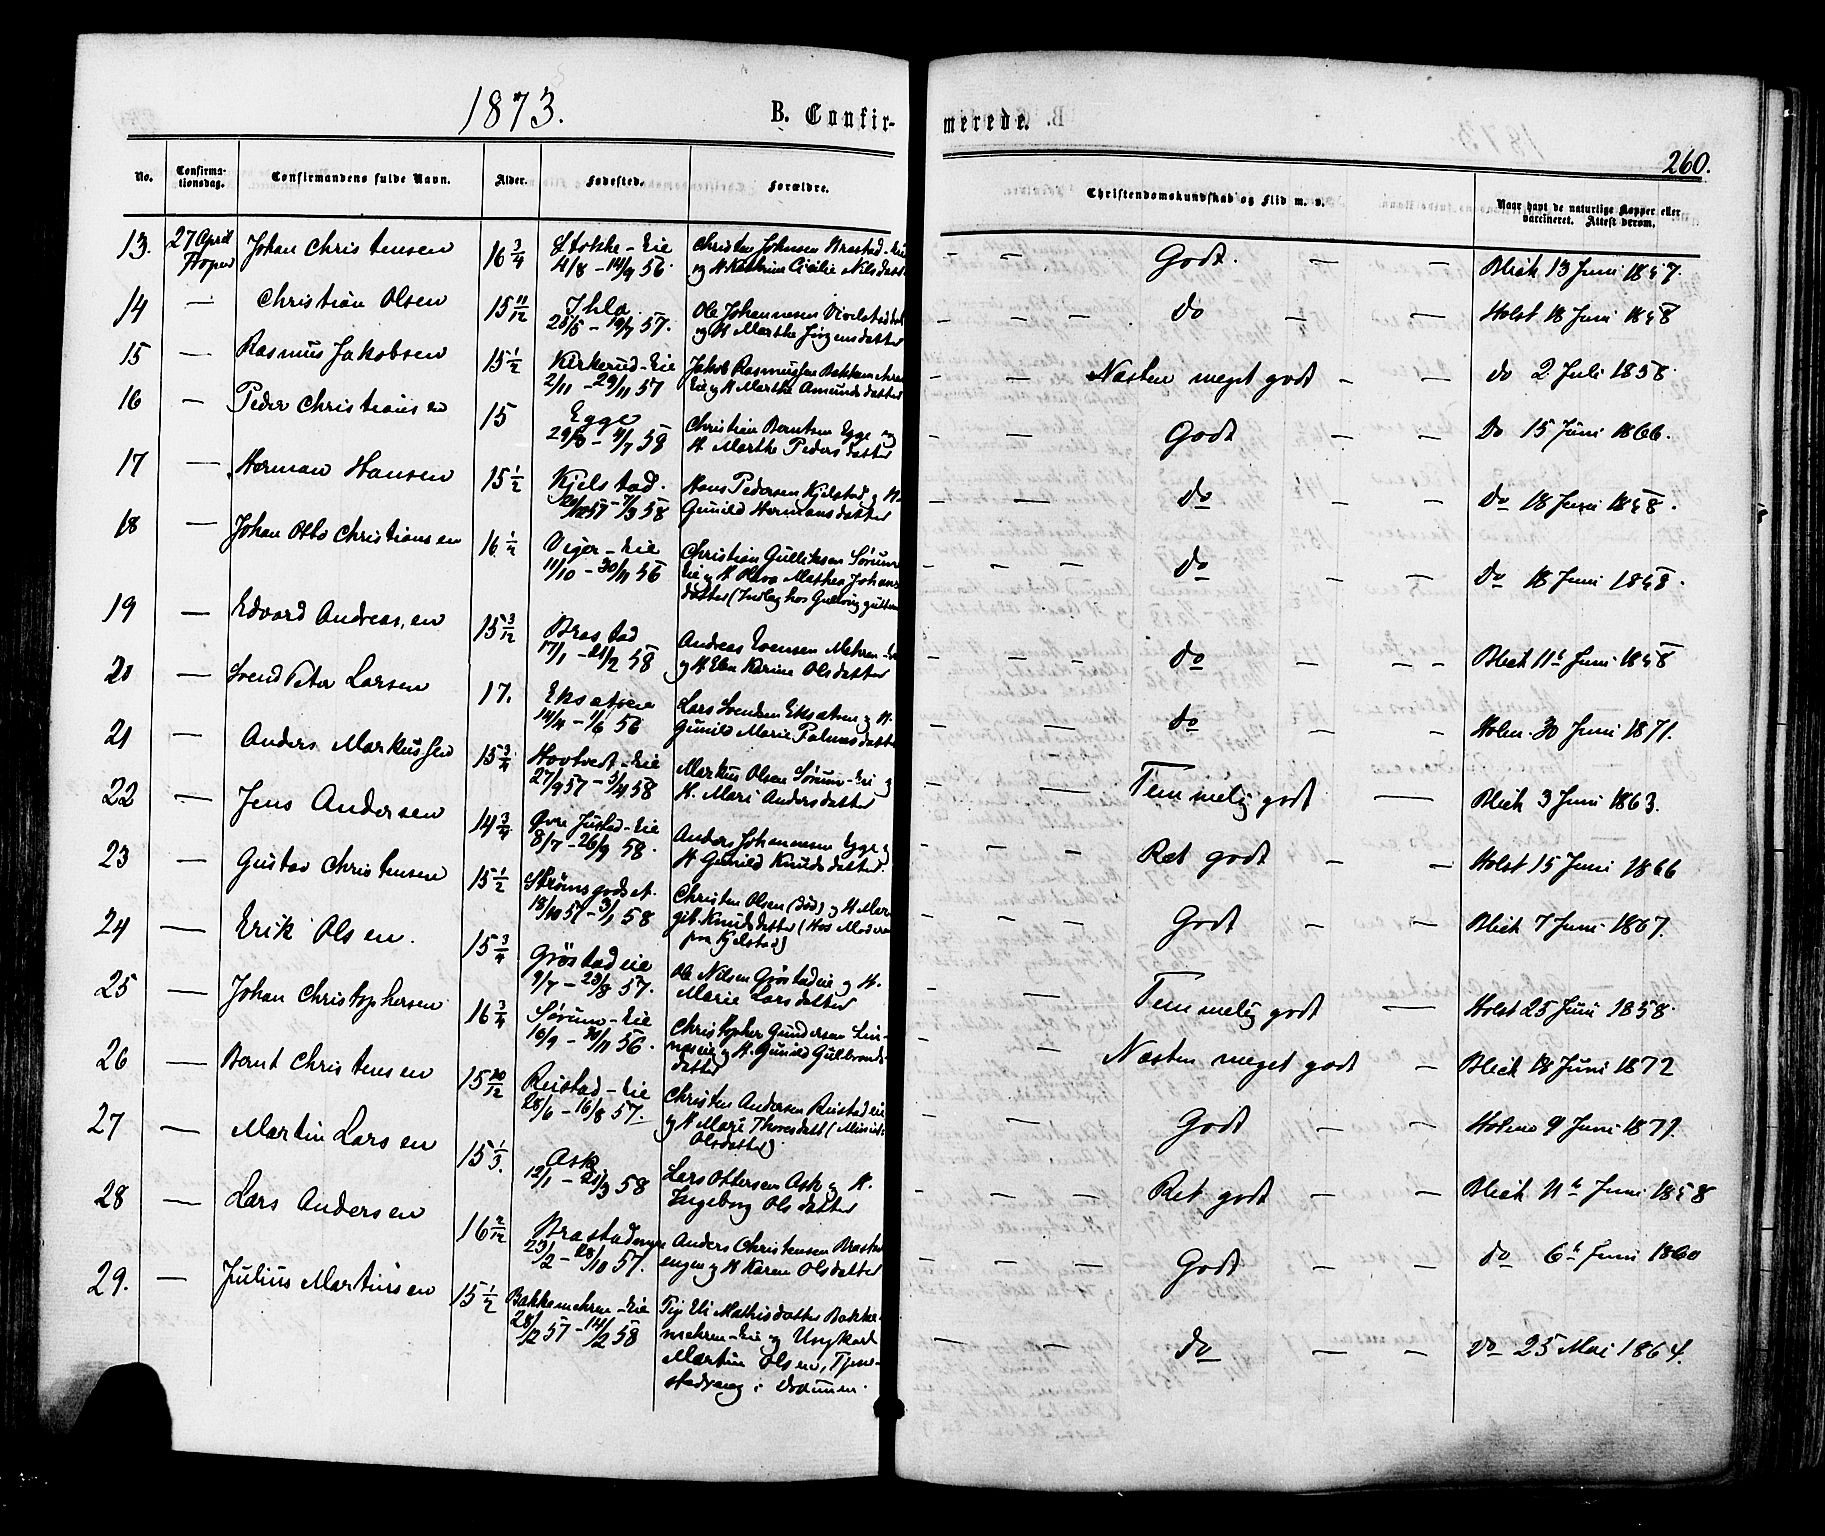 1873.
B. Confirmerede.
260.
No. Confirmationsdag. Confirmandens fulde Navn. Alder. Fødested. Forældre. Christendomskundskab og Flid m. v. Naar havt de naturlige Kopper eller vaccineret. Attest derom.
13. 27 April Johan Christensen 16 3/4 Stokke-Eie 4/8 – 14/9 56. Christen Johnsen Brastad-Eie og H. Kathrine Cicilie Nilsdatter Godt. — — Blich 13 Juni 1857.
14 — Christian Olsen 15 11/12 Ihle 25/5 – 19/7 57. Ole Johannesen og H Marthe Jørgensdatter — — — do — — Holst 18 Juni 1858
15 — Rasmus Jakobsen 15 1/2 Kirkerud-Eie 2/11 – 29/11 57 Jakob Rasmussen Eie og H Marthe Amundsdatter — — Næsten meget godt — — do 2 Juli 1858.
16 — Peder Christiansen 15 Egge 29/3 – 4/7 58 Christian Berntsen Egge og H. Marthe Pedersdatter — — Godt — — Do 15 Juni 1866.
17 — Herman Hansen 15 1/2 Kjelstad. 57 – 7/3 58 Hans Pedersen Kjelstad og H. Gunild Hermansdatter — — do — — Do 18 Juni 1858.
18 — Johan Otto Christiansen 16 1/2 Viger-Eie 11/10 – 30/11 56 Christian Gulliksen Sørum Eie og H. Mathea Johansdatter (Indlag hos — do — — do 18 Juni 1858.
19 — Edvard Andreasen 15 3/12 Brastad 17/1 – 21/2 58 Andreas Evensen Mehren-Eie og H. Karine Olsdatter — — — do — — — Blich 11t Juni 1858
20 — Svend Peter Larsen 17. 14/4 – 1/6 56 Lars Svendsen og H. Gunild Marie Palmesdatter — — do — — Holm. 30 Juni 1871.
21 — Anders Markussen 15 3/4 Hovtvedt-Eie 27/9 57 – 5/4 58 Markus Olsen Sørum-Eie og H. Mari Andersdatter — — Temmelig godt — Blich 3 Juni 1863.
22 — Jens Andersen 14 3/4 Øvre Justad-Eie 8/7 – 26/9 58. Anders Johannesen Egge og H Gunild Knudsdatter. — — — Ret godt — — Holst 15 Juni 1866
23 — Gustav Christensen 15 1/2 Strømsgodset. 18/10 57 – 3/1 58 Christen Olsen (død) og H Margit Knudsdatter (Hos Moderen fra Kjelstad) — — Godt — — Blich 7 Juni 1867.
24 — Erik Olsen. 15 3/4 Grøstadeie 9/7 – 23/8 57. Ole Nilsen Grøstadeie og H. Marie Larsdatter — Temmelig godt — — Holst 25 Juni 1858.
25 — Johan Christophersen 16 3/4 Sørum-Eie 16/9 – 30/11 56. Christopher Gundersen Linneseie og H. Gunild Gulbrandsdatter — Næsten meget godt — Blich 18 Juni 1872
26 — Bernt Christensen 15 10/12 Reistad-Eie 28/6 – 16/8 57. Christen Andersen Reistadeie og H Mari Thoresdatt Olsdatter) Godt — — Holme 9 Juni 1871.
27 — Martin Larsen 15 1/3. Ask 12/1 – 21/3 58 Lars Ottersen Ask og H. Ingeborg Olsdatter — — — Ret godt — — Blich 11te Juni 1858
28 — Lars Andersen 16 2/12 Brastadengen 23/2 – 18/10 57. Anders Christensen Brastadengen og H Karen Olsdatter — — — Godt — — do 6t Juni 1860
29. — Julius Martinsen 15 1/2 Bakkemehren-Eie 28/12 57 – 14/2 58 Pige Eli Mathisdatter Bakkemehren-Eie og Ungkarl Martin Olsen, i Drammen. — — do — — Do 25 Mai 1864.